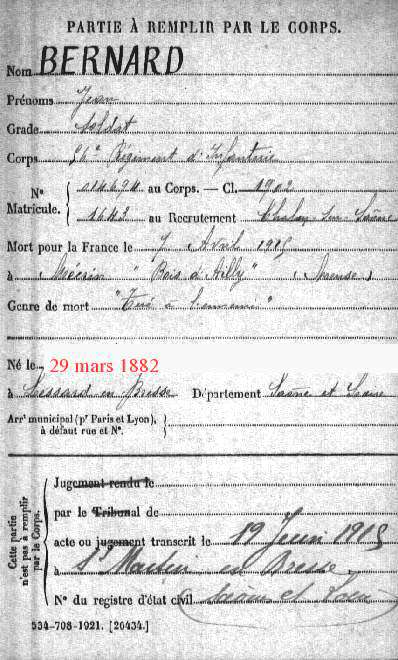 PARTIE À REMPLIR PAR LE CORPS.
Nom BERNARD
Prénoms Jean
Grade Soldat
Corps 56e Régiment d'Infanterie
No Matricule.
014694 au Corps. — Cl. 1902
1643 au Recrutement Chalon sur Saône
Mort pour la France le 7 Avril 1915
à Mécrin "Bois d'Ailly" (Meuse)
Genre de mort "Tué à l'ennemi"
Né le 29 mars 1882
à Lessard en Bresse Département Saône et Loire
Arrt municipal (pr Paris et Lyon), à défaut rue et No.
Cette partie n'est pas à remplir par le Corps.
Jugement rendu le
par le Tribunal de
acte ou jugement transcrit le 19 Juin 1915
à St Martin en Bresse
No du registre d'état civil Saône et Loire
534-708-1921. [20434.]